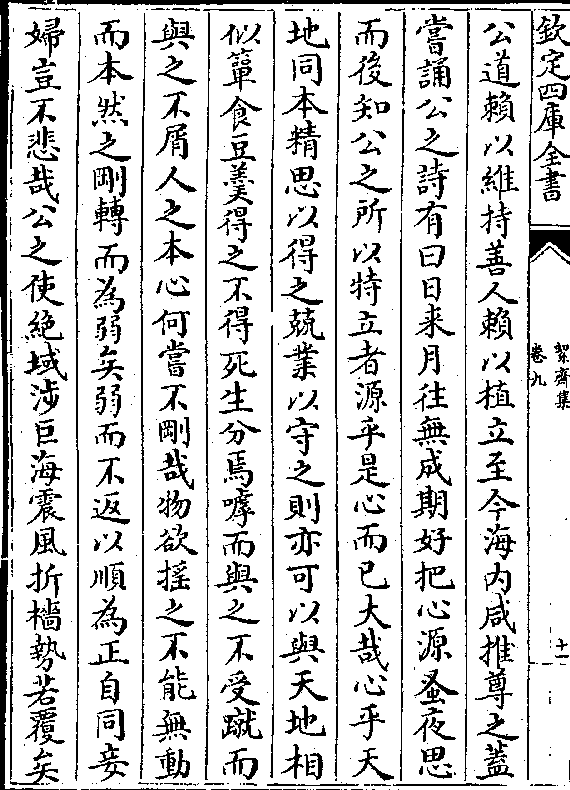 欽定四庫全書
絜齋集
卷九
十一
公道賴以維持善人賴以植立至今海内咸推尊之蓋
嘗誦公之詩有曰日来月往無成期好把心源蚤夜思
而後知公之所以特立者源乎是心而已大哉心乎天
地同本精思以得之兢業以守之則亦可以與天地相
似簞食豆羹得之不得死生分焉嘑而與之不受蹴而
與之不屑人之本心何嘗不剛哉物欲搖之不能無動
而本然之剛轉而為弱矣弱而不返以順為正自同妾
婦豈不悲哉公之使絶域涉巨海震風折檣勢若覆矣